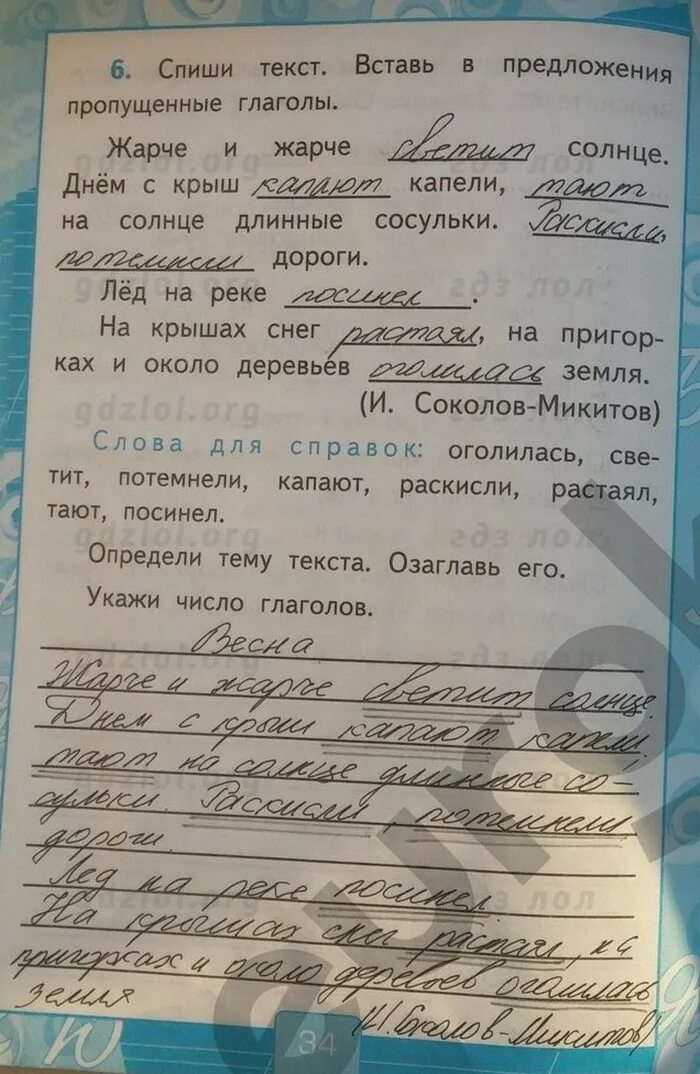 6. Спиши текст. Вставь в предложения
пропущенные глаголы.
Жарче и жарче светит солнце.
Днём с крыш капают капели, тают
на солнце длинные сосульки. Раскисли,
потемнели дороги.
Лёд на реке посинел.
На крышах снег растаял, на пригор-
ках и около деревьев оголилась земля.
(И. Соколов-Микитов)
Слова для справок: оголилась, све-
тит, потемнели, капают, раскисли, растаял,
тают, посинел.
Определи тему текста. Озаглавь его.
Укажи число глаголов.
Весна
Жарче и жарче светит солнце.
Днем с крыш капают капели,
тают на солнце длинные со-
сульки. Раскисли, потемнели
дороги.
Лед на реке посинел.
На крышах снег растаял, на
пригорках и около деревьев оголилась
земля
(И. Соколов-Микитов)
34
gdzlol.org
eurok